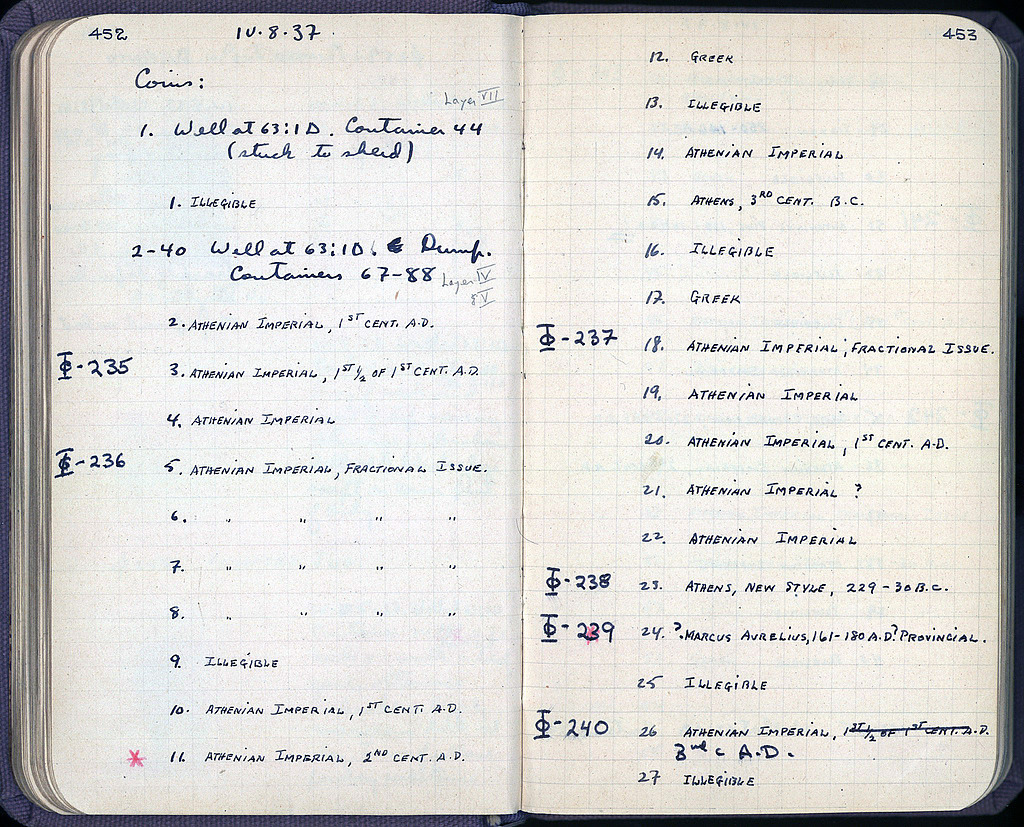 452
10·8·37·
Coins:
Layer VII
1. Well at 63:1D. Container 44
(stuck to sherd)
1. ILLEGIBLE
2-40 Well at 63:1D. Dump.
Containers 67-88
Layer IV
& V
2. ATHENIAN IMPERIAL, 1ST CENT. A.D.
Φ-235 3. ATHENIAN IMPERIAL, 1ST 1/2 OF 1ST CENT. A.D.
4. ATHENIAN IMPERIAL
Φ-236 5. ATHENIAN IMPERIAL, FRACTIONAL ISSUE.
6. " " " "
7. " " " "
8. " " " "
9. ILLEGIBLE
10. ATHENIAN IMPERIAL, 1ST CENT. A.D.
* 11. ATHENIAN IMPERIAL, 2ND CENT. A.D.
453
12. GREEK
13. ILLEGIBLE
14. ATHENIAN IMPERIAL
15. ATHENS, 3RD CENT. B.C.
16. ILLEGIBLE
17. GREEK
Φ-237 18. ATHENIAN IMPERIAL, FRACTIONAL ISSUE.
19. ATHENIAN IMPERIAL
20. ATHENIAN IMPERIAL, 1ST CENT. A.D.
21. ATHENIAN IMPERIAL ?
22. ATHENIAN IMPERIAL
Φ-238 23. ATHENS, NEW STYLE, 229-30 B.C.
Φ-239 24. ?MARCUS AURELIUS, 161-180 A.D.? PROVINCIAL.
25 ILLEGIBLE
Φ-240 26 ATHENIAN IMPERIAL, 1ST 1/2 OF 1ST CENT. A.D.
3rd c A.D.
27 ILLEGIBLE